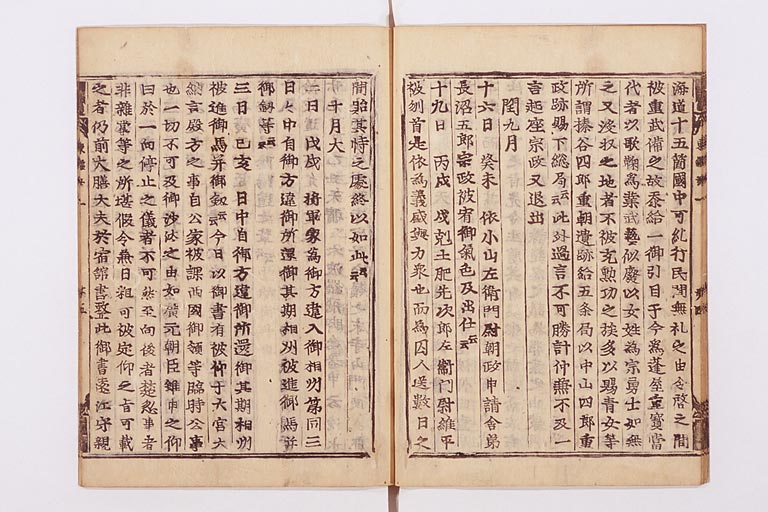 海道十五箇國中可糺行民間無礼之由令啓之間
被重武備之故忝給一御引目于今為蓬屋重寳當
代者以歌鞠為業武藝似廢以女姓為宗勇士如無
之又没収之地者不被充勲功之族多以賜青女等
所謂榛谷四郎重朝遺跡給五条局以中山四郎重
政跡賜下総局云云此外過言不可勝計仲兼不及一
言起座宗政又退出
閏九月
十六日 癸未 依小山左衛門尉朝政申請舎弟
長沼五郎宗政被宥御氣色及出仕云云
十九日 丙戌 天戌剋土肥先次郎左衛門尉維平
被刎首是依為義盛與力衆也而為囚人送數日之
間
○十月大
二日 戊戌 将軍家為御方違入御相州第同三
日之中自御方違御所還御其期相州被進御馬并
御劔等云云
三日 己亥 日中自御方違御所還御其期相州
被進御馬并御劔云云今日以御書有被仰于大宮大
納言殿方之事自公家被課西國御領等臨時公事
也一切不可及御沙汰之由如廣元朝臣雖申之仰
曰於一向停止之儀者不可然至向後者
非雜掌等之所堪假令兼日粗可被定仰之旨可載
之者仍前大膳大夫於宿舘書整此御書遠江守親